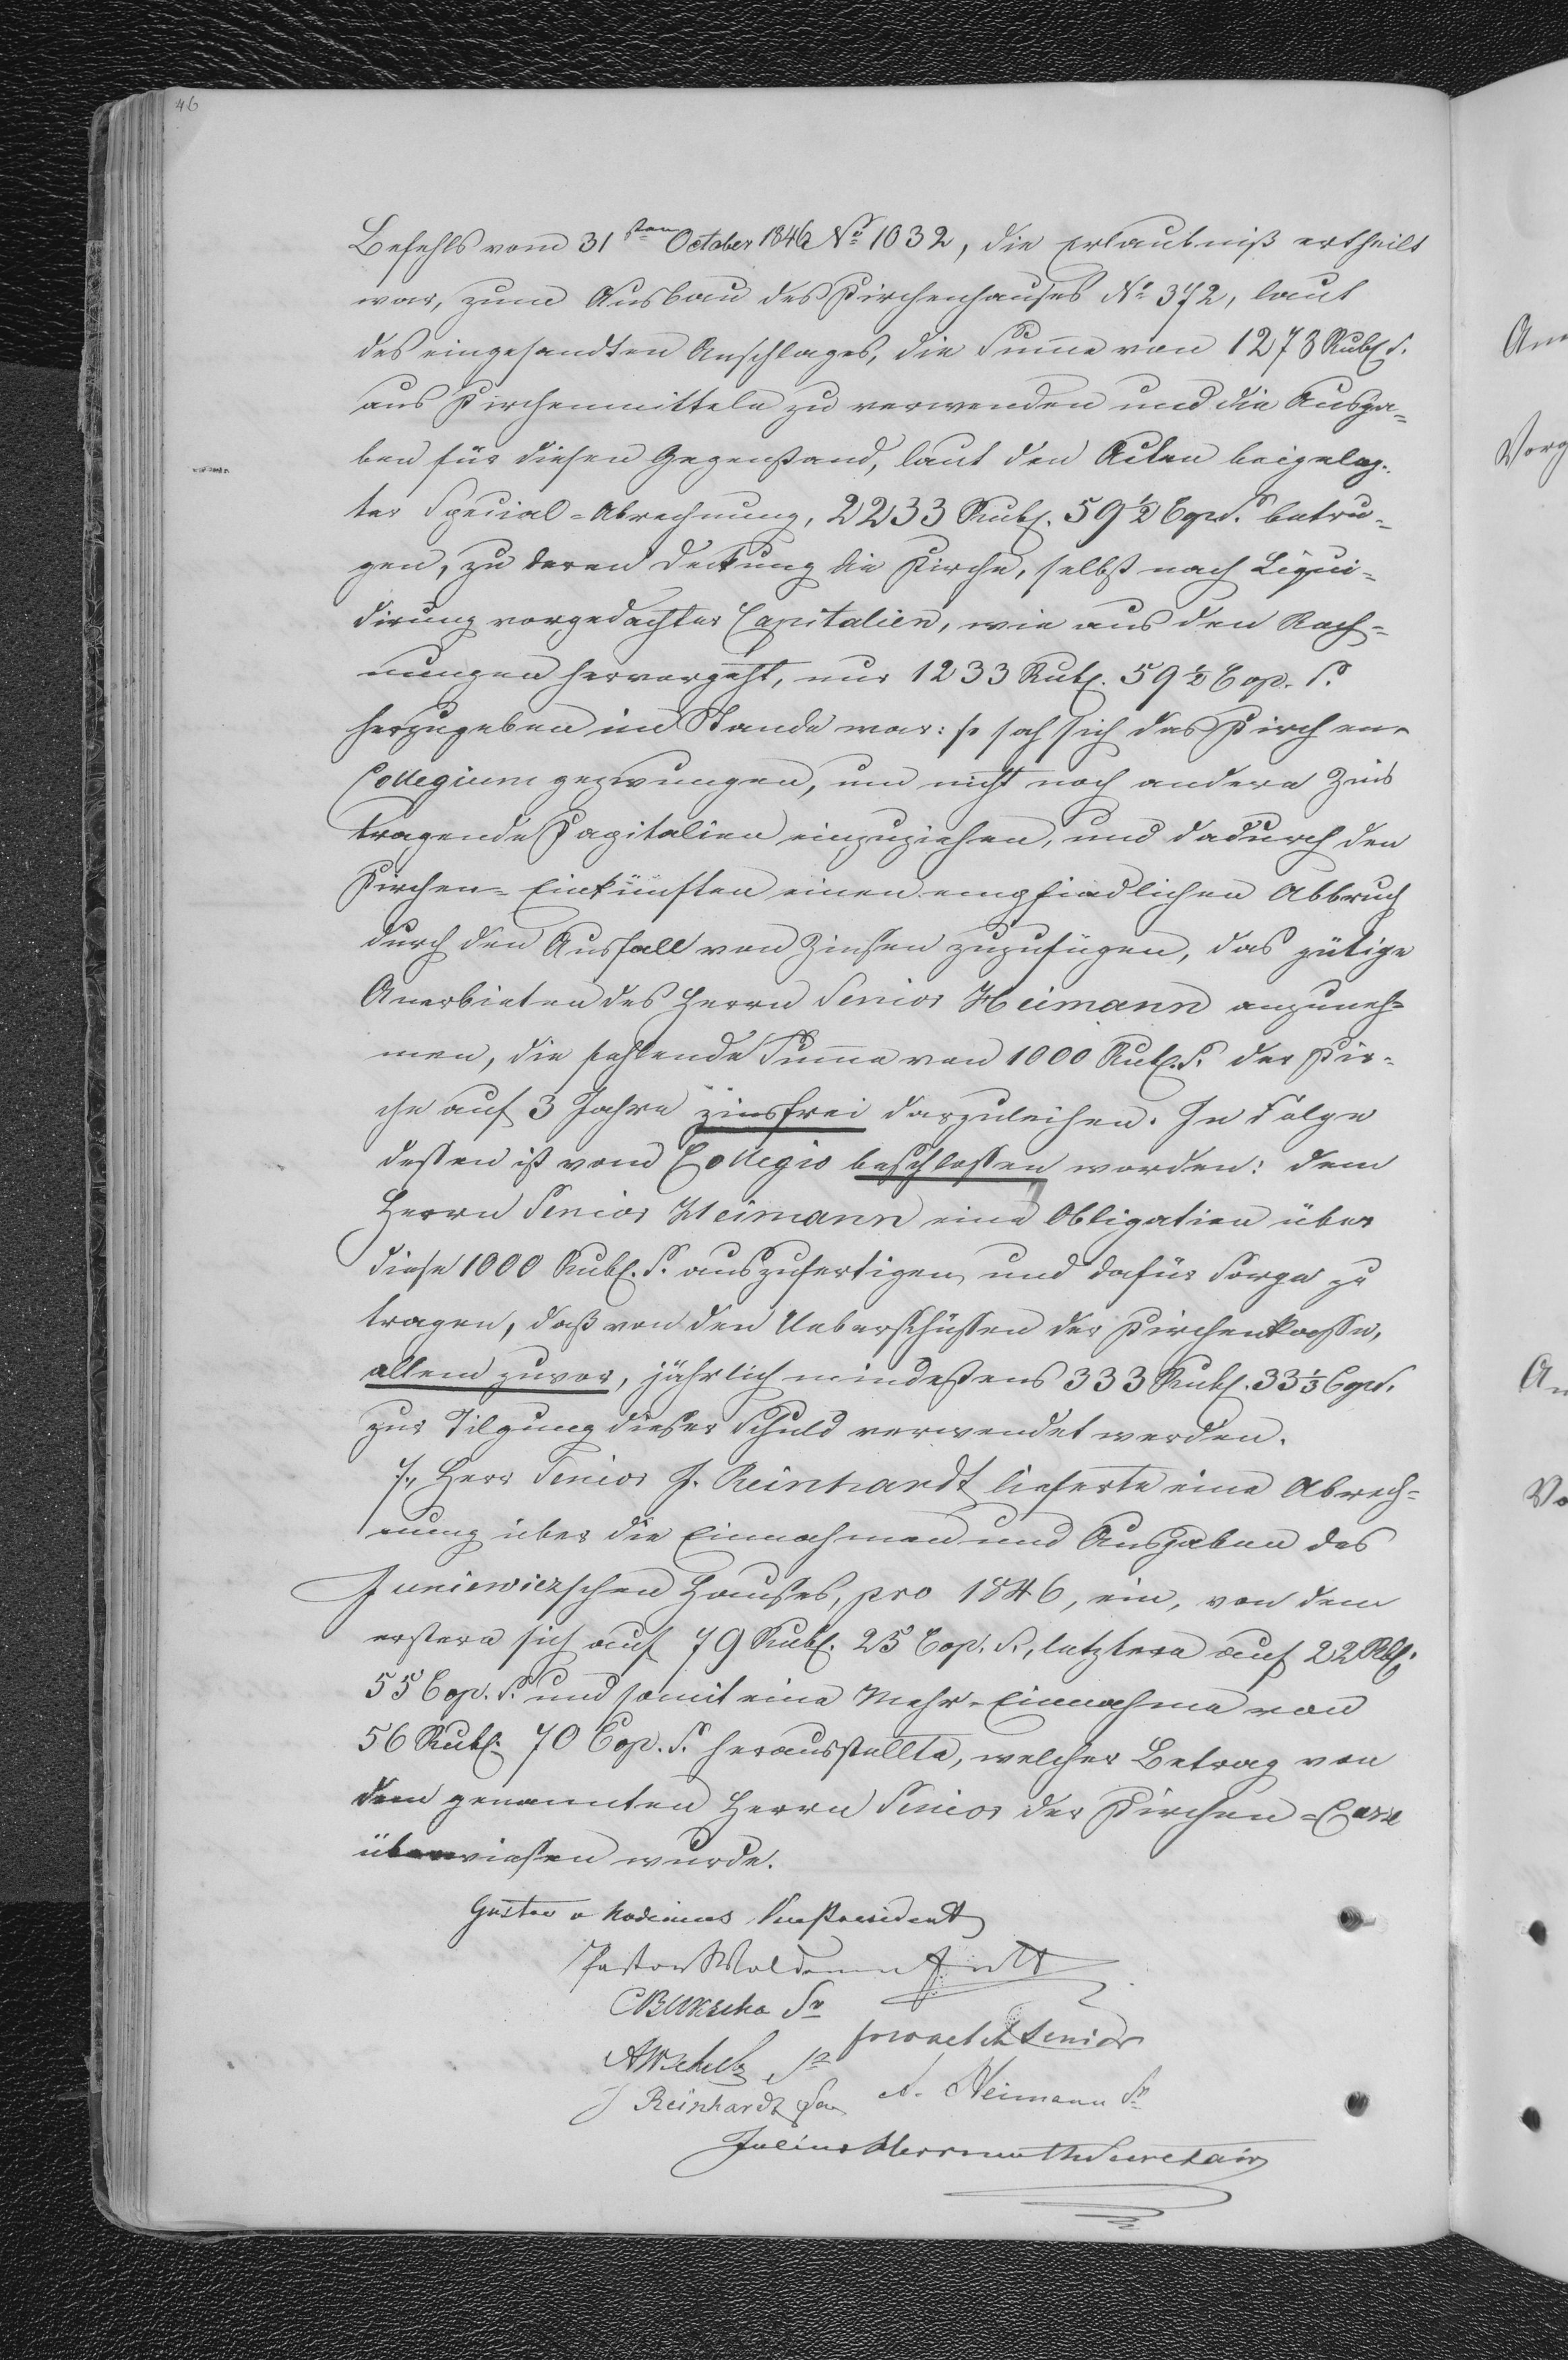 46
Befehls vom 31sten October 1846 No 1032, die Erlaubniß ertheilt
war, zum Ausbau des Kirchenhauses No 372, laut
des eingesandten Anschlages, die Sum̅e von 1273 Rub. S.
aus Kirchenmitteln zu verwenden und die Ausga=
ben für diesen Gegenstand, laut den Acten beigeleg=
ter Special=Abrechnung, 2233 Rub. 59 1/2 Cop. S. betru=
gen, zu deren Deckung die Kirche, selbst nach Liqui=
dirung vorgedachter Capitalien, wie aus den Rech=
nungen hervorgeht, nur 1233 Rub. 59 1/2 Cop. S.
herzugeben im Stande war: so sah sich das Kirchen-
Collegium gezwungen, um nicht noch andere Zins
tragende Capitalien einzuziehen, und dadurch den
Kirchen=Einkünften einen empfindlichen Abbruch
durch den Ausfall von Zinsen zuzufügen, das gütige
Anerbieten des Herrn Senior Heimann anzuneh=
men, die fehlende Sum̅e von 1000 Rub. S. der Kir=
che auf 3 Jahre zinsfrei darzuleihen. In Folge
dessen ist vom Collegio beschlossen worden: dem
Herrn Senior Heimann eine Obligation über
diese 1000 Rub. S. auszufertigen, und dafür Sorge zu
tragen, daß von den Ueberschüssen der Kirchenkasse,
allem zuvor, jährlich mindestens 333 Rub. 33 1/3 Cop. S.
zur Tilgung dieser Schuld verwendet werden.
7., Herr Senior J. Reinhardt lieferte eine Abrech=
nung über die Einnahmen und Ausgaben des
Juniewiczschen Hauses, pro 1846, ein, von dem
erstere sich auf 79 Rub. 25 Cop. S., letztere auf 22 Rb.
55 Cop. S. und somit eine Mehr=Einnahme von
56 Rub. 70 Cop. S. herausstellte, welcher Betrag von
dem genannten Herrn Senior der Kirchen=Casse
überwiesen wurde.
Gustav v Vicepraesident
Pastor
Sr
Senior
Sr
J Reinhardt Sen
A. Heimann Sr
Julius Herrmuth Secretair
An
Vorg
An
Vo